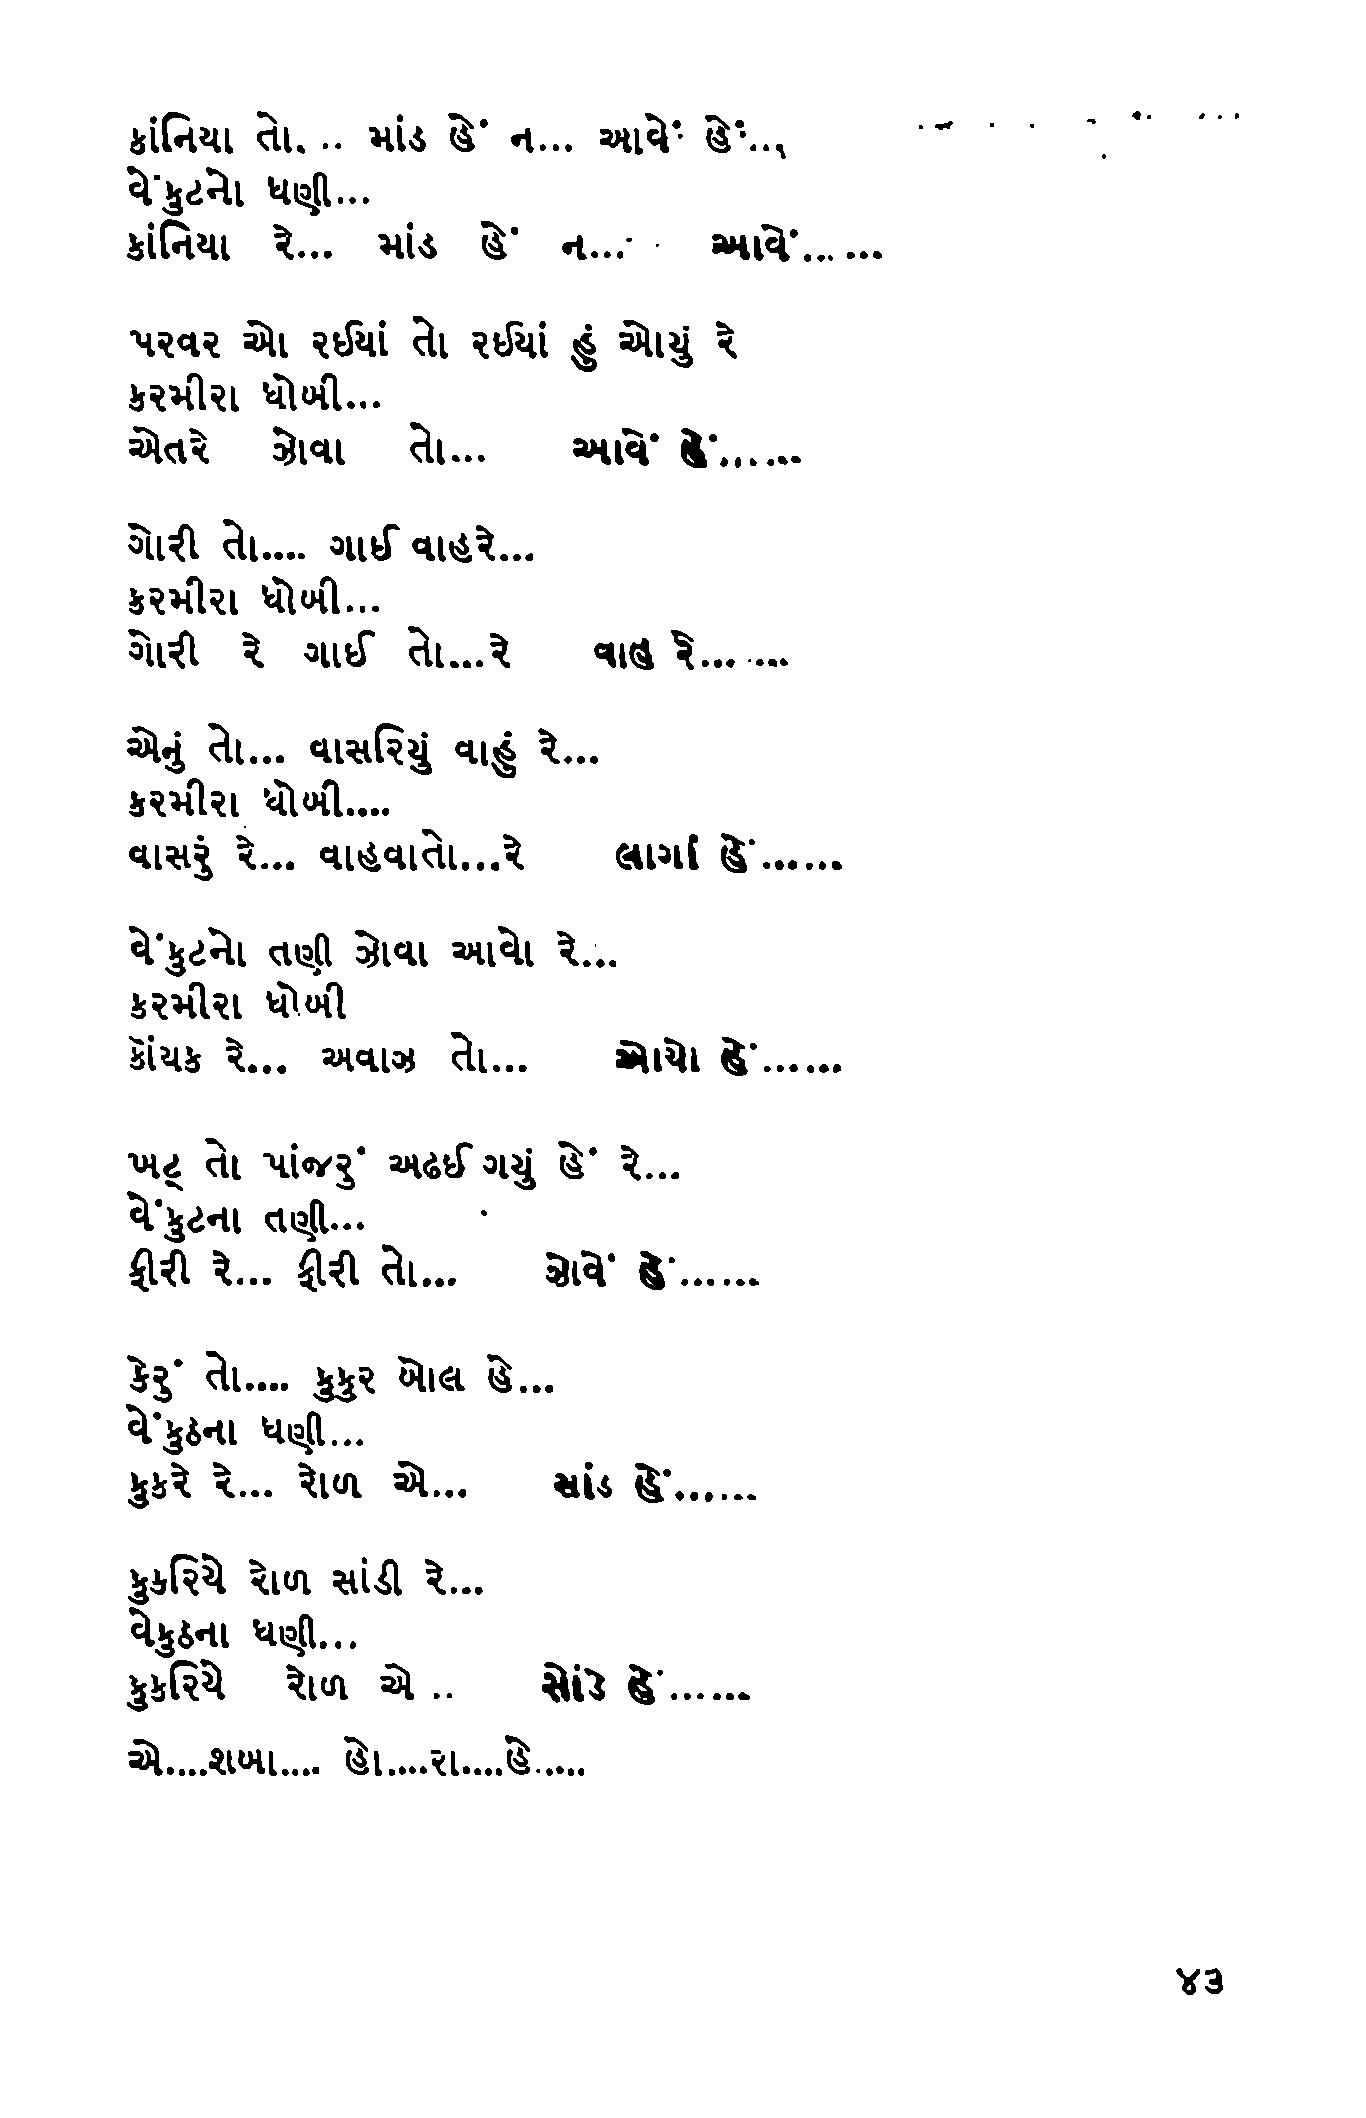 કાંનિયા તો... માંડ હેં ન... આવેં હેં...
વેંકુટનો ધણી...
કાંનિયા રે... માંડ હેં ન... આવેં......
પરવર ઓ રઈયાં તો રઈયાં હું ઓયું રે
કરમીરા ધોબી...
એતરે ઝોવા તો... આવેં હેં......
ગોરી તો.... ગાઈ વાહરે...
કરમીરા ધોબી...
ગોરી રે ગાઈ તો...રે વાહ રે......
એનું તો... વાસરિયું વાહું રે...
કરમીરા ધોબી....
વાસરું રે... વાહવાતો...રે લાગાં હેં......
વેંકુટનો તણી ઝોવા આવો રે...
કરમીરા ધોબી
કોંયક રે... અવાઝ તો... ઓયો હેં......
ખટ્ તો પાંજરું અઢઈ ગયું હેં રે...
વેંકુટના તણી...
ફીરી રે... ફીરી તો... ઝોવેં હેં......
કેરું તો.... કુકુર બોલ હે...
વેંકુઠના ધણી...
કુકરે રે... રોળ એ... સાંડ હેં......
કુકરિયે રોળ સાંડી રે...
વેકુઠના ધણી...
કુકરિયે રોળ એ .. સોંડે હેં......
એ....શબા.... હો....રા....હે.....
૪૩